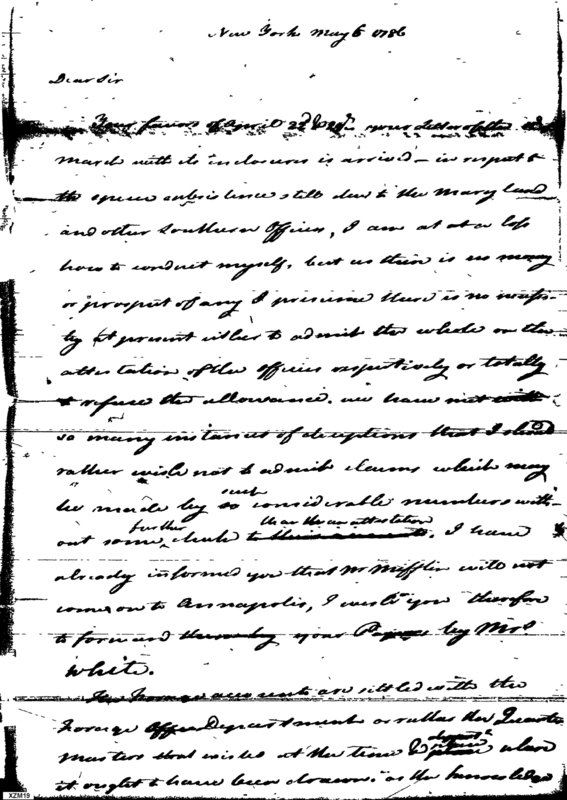 New York May 6 1786
Dear Sir
Your favors of April 22d & 29th your Letter of the
March with its inclosures is arrived – in respect to
the specie subsistence still due to the Mary land
and other Southern Officers, I am at at a loss
how to conduct myself, but as there is no money
or prospect of any I presume there is no necessi-
ty at present either to admit the whole on the
attestation of the Officers respectively or totally
to refuse the allowance. we have met with
so many instances of deceptions that I should
rather wish not to admit claims which may
be made by such considerable numbers with-
out some further check than their own attestation. I have
already informed you that Mr Mifflin will not
come on to Annapolis, I wish you therefore
to forward your Papers by Mrs
White.
The Forage accounts are settled with the
Forage Department or rather the Quarter
Masters that existed at the time & place where
it ought to have been drawn. as the knowledge
XZM19